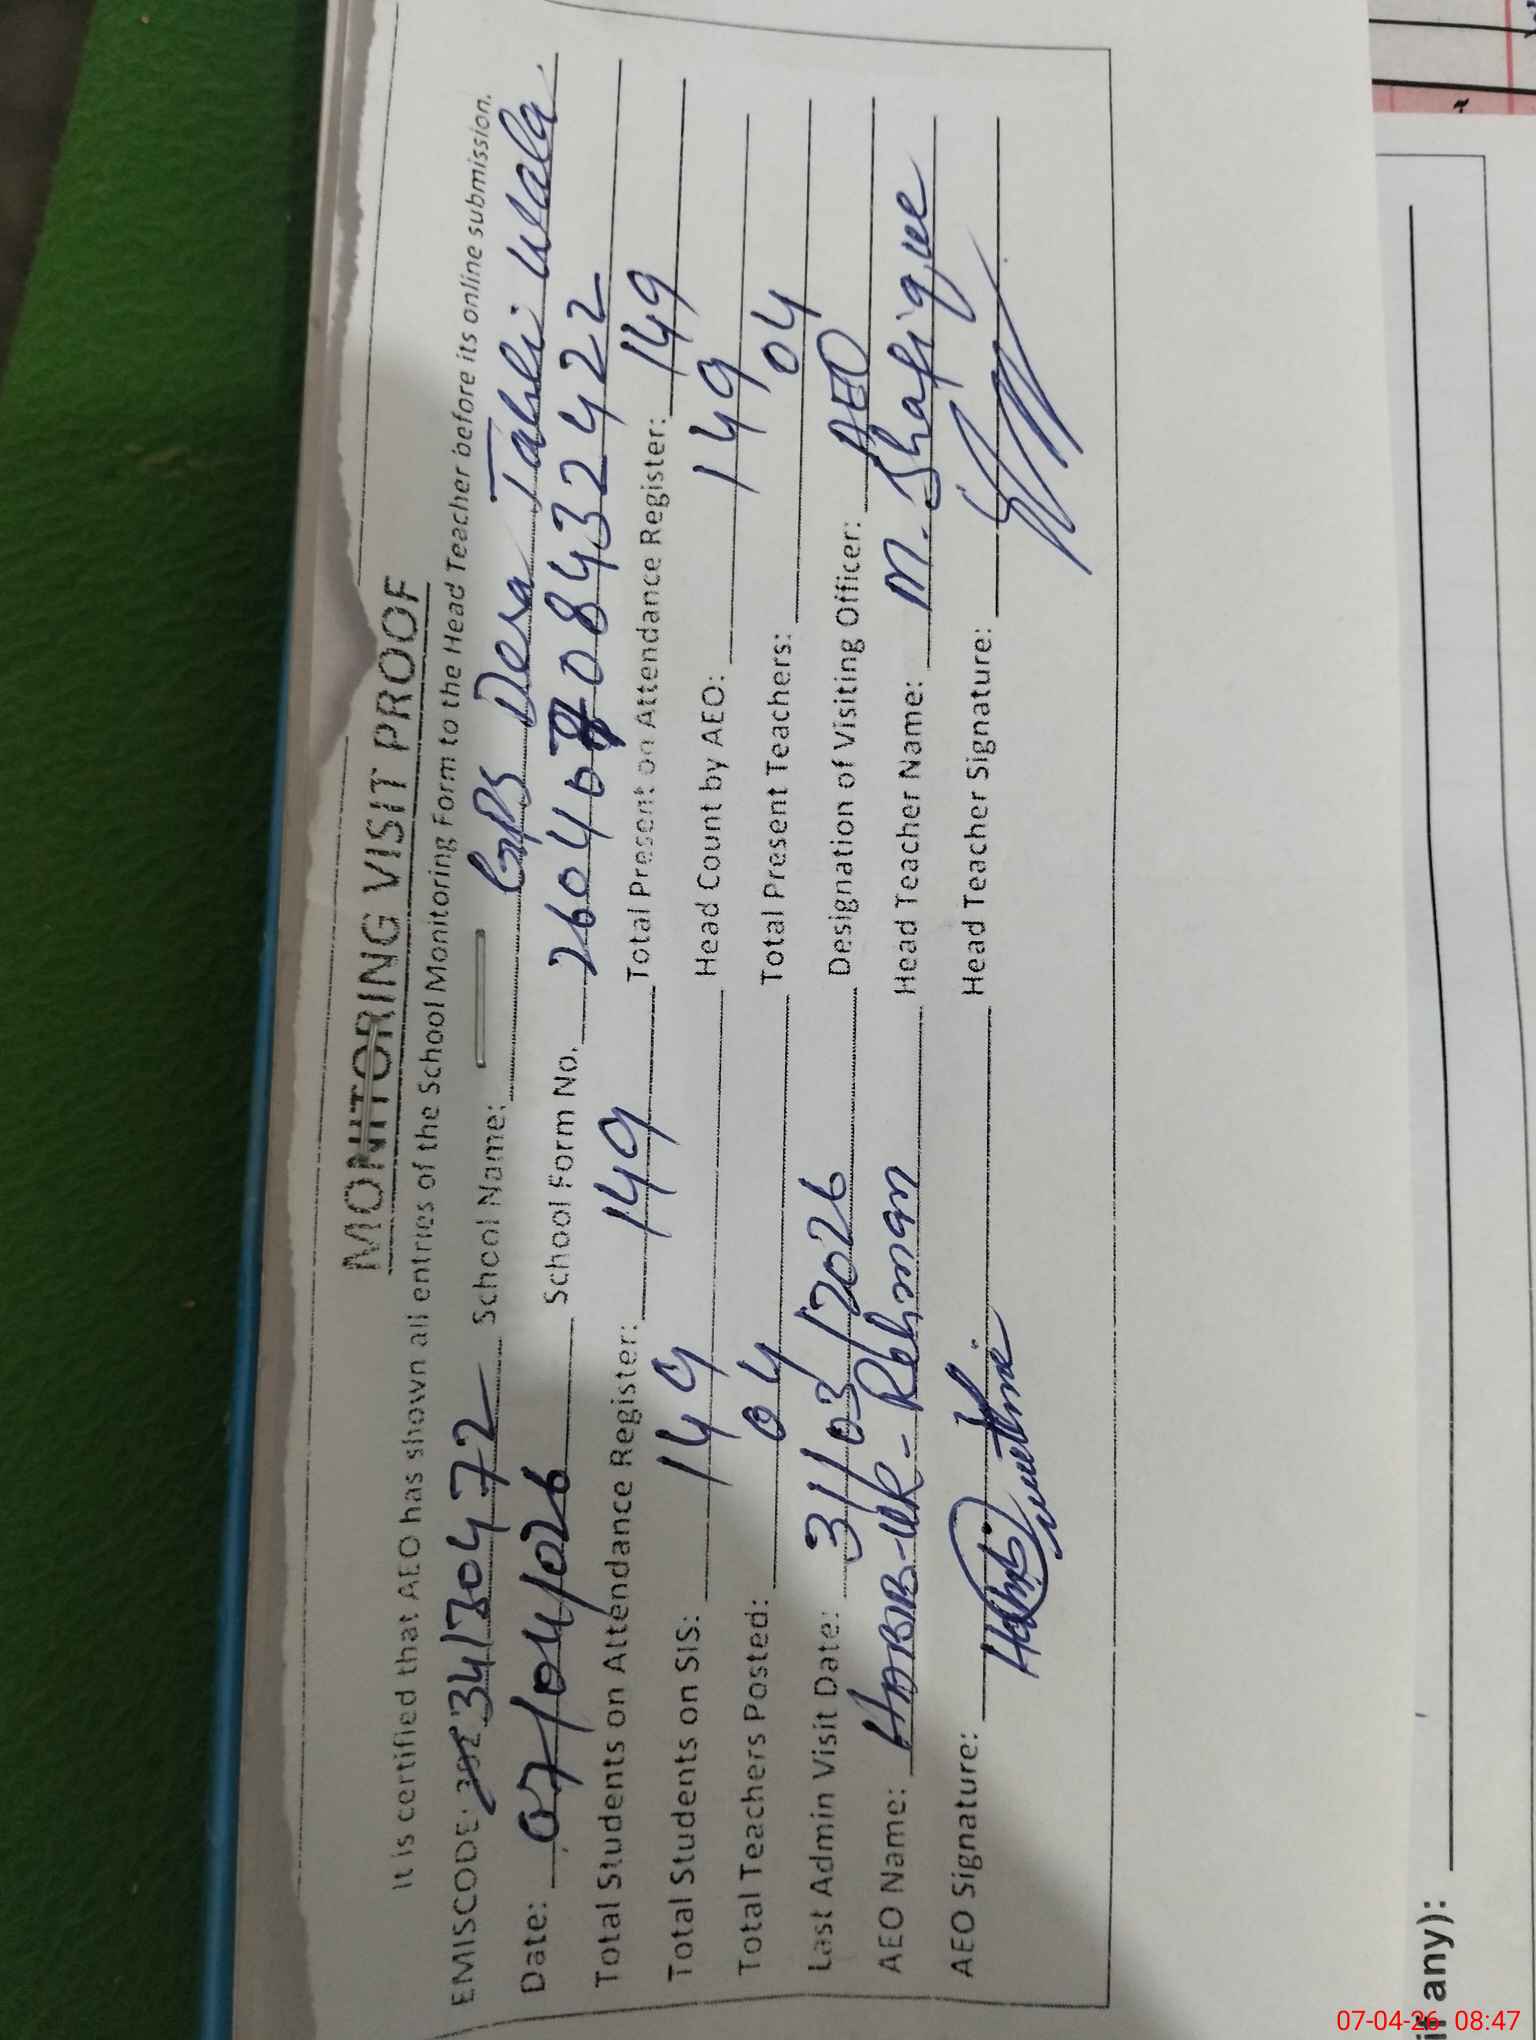 MONITORING VISIT PROOF
It is certified that AEO has shown all entries of the School Monitoring Form to the Head Teacher before its online submission.
EMISCODE: 34130472 School Name: GPS Dera Tahli Wala
Date: 07/04/026 School Form No. 2604070843242 2
Total Students on Attendance Register: 149 Total Present on Attendance Register: 149
Total Students on SIS: 149 Head Count by AEO: 149
Total Teachers Posted: 04 Total Present Teachers: 04
Last Admin Visit Date: 31/03/2026 Designation of Visiting Officer: AEO
AEO Name: HABIB-UR-Rehman Head Teacher Name: M. Shafique
AEO Signature: Head Teacher Signature:
if any):
07-04-26 08:47